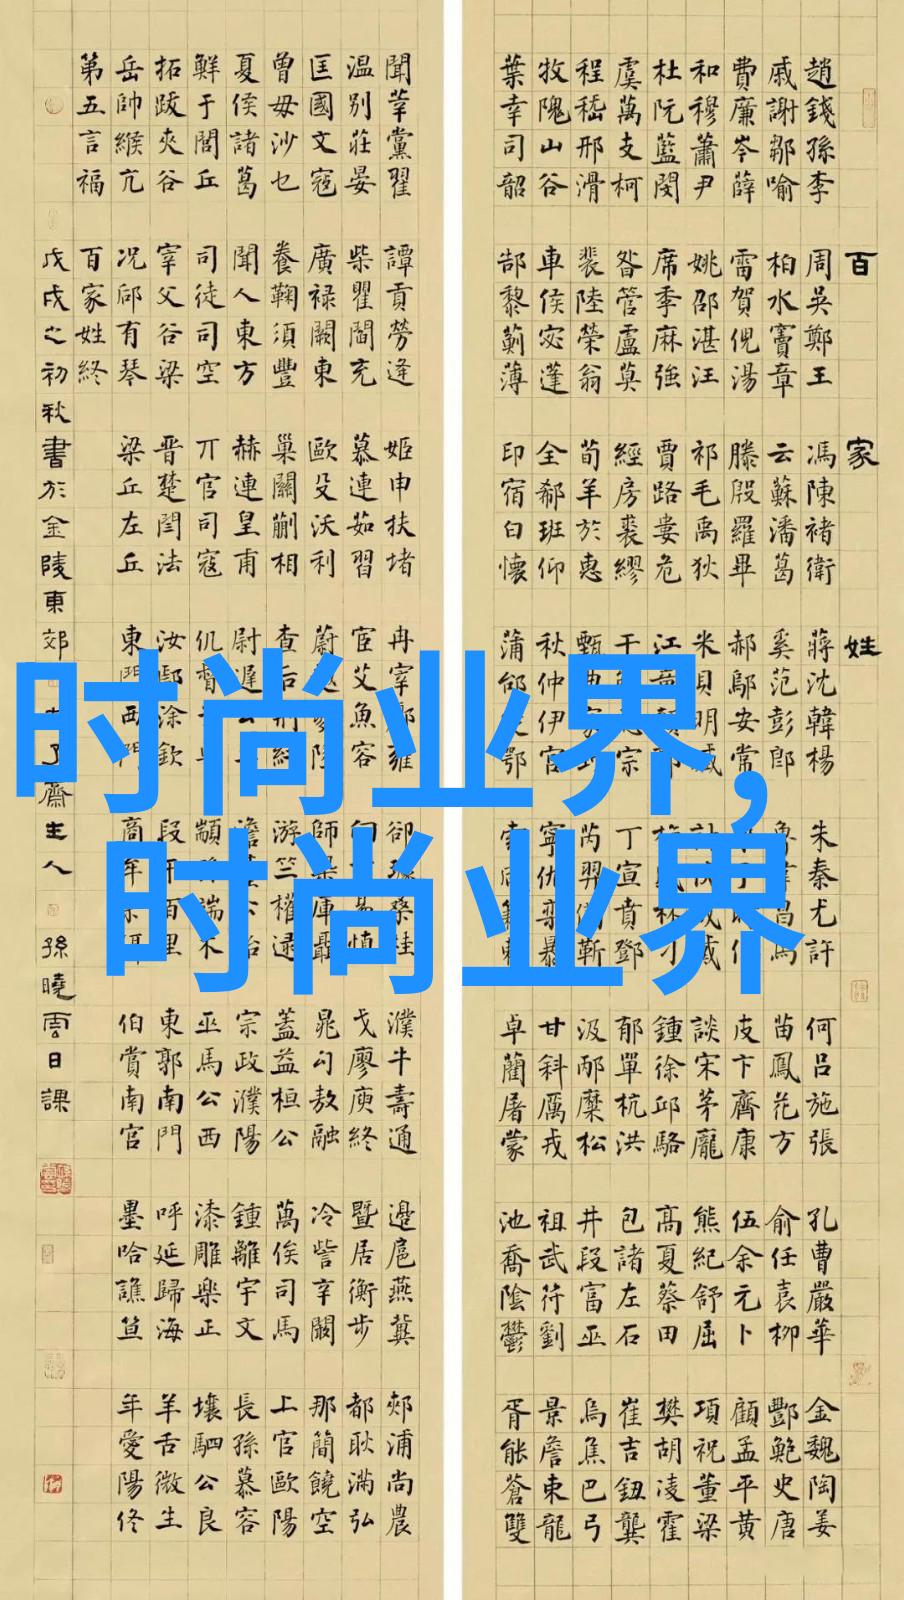 百家姓
趙錢孫李 周吳鄭王 馮陳褚衛 蔣沈韓楊 朱秦尤許 何呂施張 孔曹嚴華 金魏陶姜
戚謝鄒喻 柏水竇章 云蘇潘葛 奚范彭郎 魯韋昌馬 苗鳳花方 俞任袁柳 酆鮑史唐
費廉岑薛 雷賀倪湯 滕殷羅畢 郝鄔安常 皮卞齊康 伍余元卜 顧孟平黃
和穆蕭尹 姚邵湛汪 祁毛禹狄 米貝明臧 談宋茅龐 熊紀舒屈 項祝董梁
杜阮藍閔 席季麻強 賈路婁危 江童 林刁 鍾徐邱駱 高夏蔡田 樊胡凌霍
虞萬支柯 昝管盧莫 經房裘繆 干宗 丁宣賁鄧 郁單杭洪 包諸左石 崔吉鈕龔
程嵇邢滑 裴陸榮翁 荀羊於惠 甄 芮羿靳 汲邴糜松 井段富巫 烏焦巴弓
牧隗山谷 車侯宓蓬 全郗班仰 秋仲伊宮 寧仇欒暴 甘斜厲戎 祖武符劉 景詹束龍
葉幸司韶 郜黎薊薄 印宿白懷 蒲邰鄂 索 卓藺屠蒙 池喬陰鬱 胥能蒼雙
聞莘黨翟 譚貢勞逄 姬申扶堵 冉宰酈雍 卻璩桑桂 濮牛壽通 邊扈燕冀 郟浦尚農
温別莊晏 柴瞿閻充 慕連茹習 宦艾魚容 向慎 戈廖庾終 暨居衡步 都耿滿弘
匡國文寇 廣禄闕東 歐殳沃利 蔚越 師鞏庫聶 晁勾敖融 冷訾辛闞 那簡饒空
曾毋沙乜 養鞠須豐 巢關蒯相 查后荊紅 游竺權逯 蓋益桓公 萬俟司馬 上官歐陽
夏侯諸葛 聞人東方 赫連皇甫 尉遲公羊 澹臺公冶 宗政濮陽 鍾離宇文 長孫慕容
鮮于閭丘 司徒司空 丌官司寇 仉督 顓孫端木 巫馬公西 漆雕樂正 壤駟公良
拓跋夾谷 宰父谷梁 晋楚閆法 汝鄢涂欽 段干百里 東郭南門 呼延歸海 羊舌微生
岳帥緱亢 況郈有琴 梁丘左丘 東門西門 商牟 伯賞南宮 墨哈譙笪 年愛陽佟
第五言福 百家姓終
戊戌之初秋書於金陵東郊 了齋主人 孫曉雲日課
时尚业界,
时尚业界